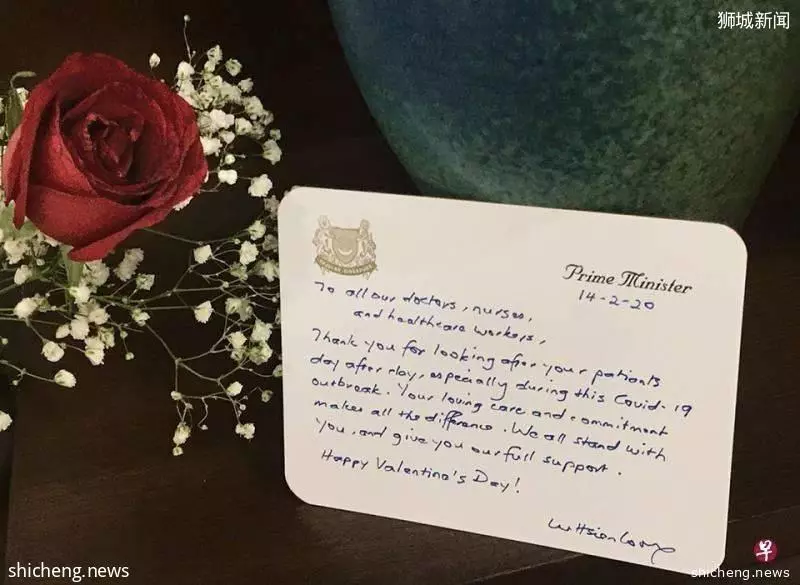 狮城新闻
Prime Minister
14-2-20
To all our doctors, nurses,
and healthcare workers,
Thank you for looking after your patients
day after day, especially during this Covid-19
outbreak. Your loving care and commitment
makes all the difference. We all stand with
you, and give you our full support.
Happy Valentine's Day!
Lee Hsien Loong
早
shicheng.news
shicheng.news